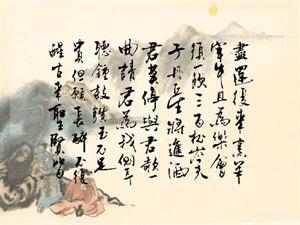 盡還復來烹羊
宰牛且為樂會
須一飲三百杯岑夫
子丹丘生將進酒
君莫停與君歌一
曲請君為我側耳
聽鐘鼓饌玉不足
貴但願長醉不復
醒古來聖賢皆